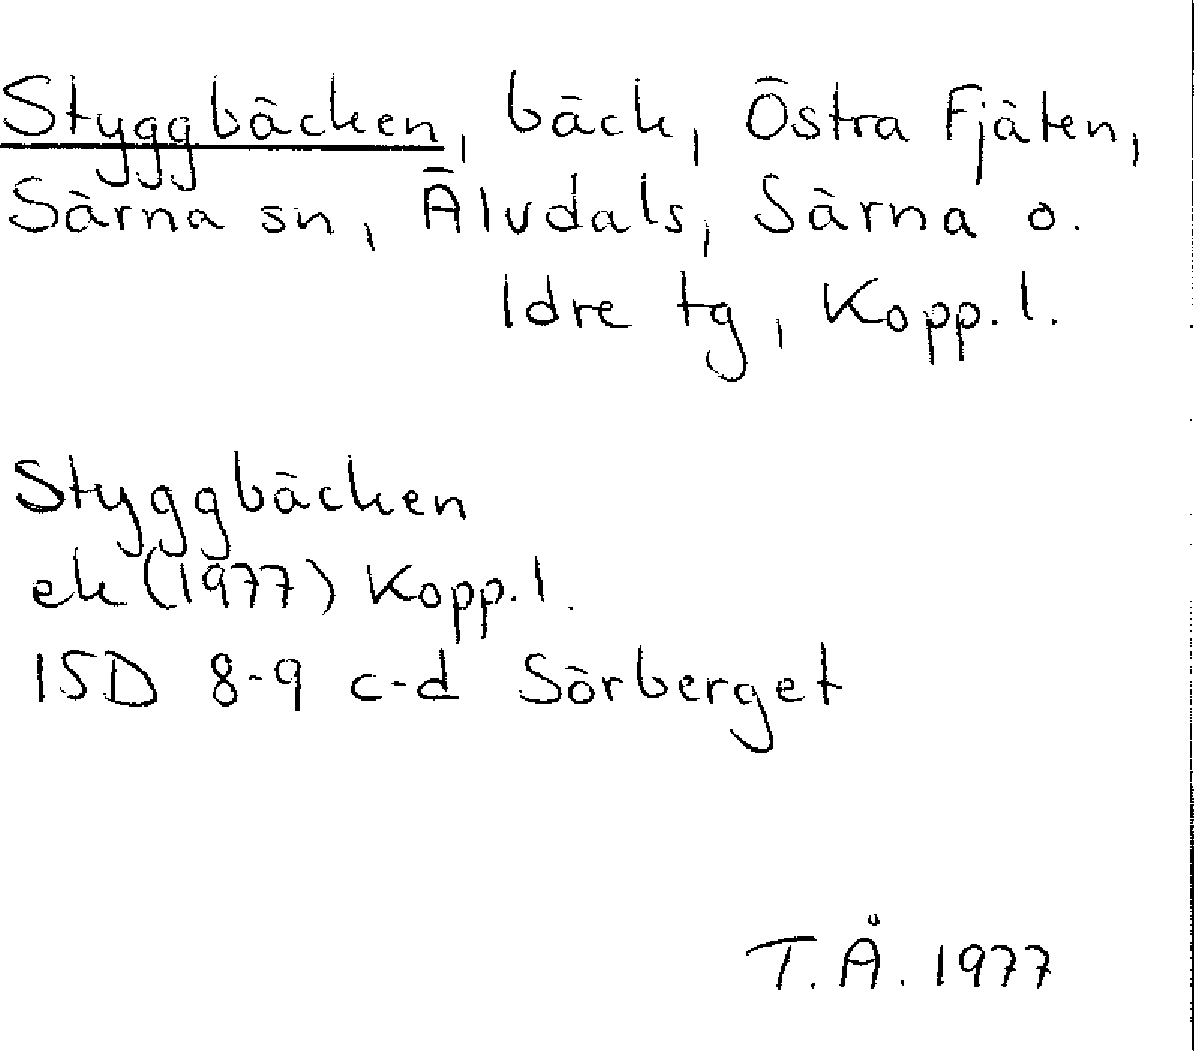 Styggbäcken, bäck, Östra Fjäten,
Särna sn, Älvdals, Särna o.
Idre tg, Kopp. l.
Styggbäcken
ek (1977) Kopp. l.
15D 8-9 c-d Sörberget
T. Å. 1977